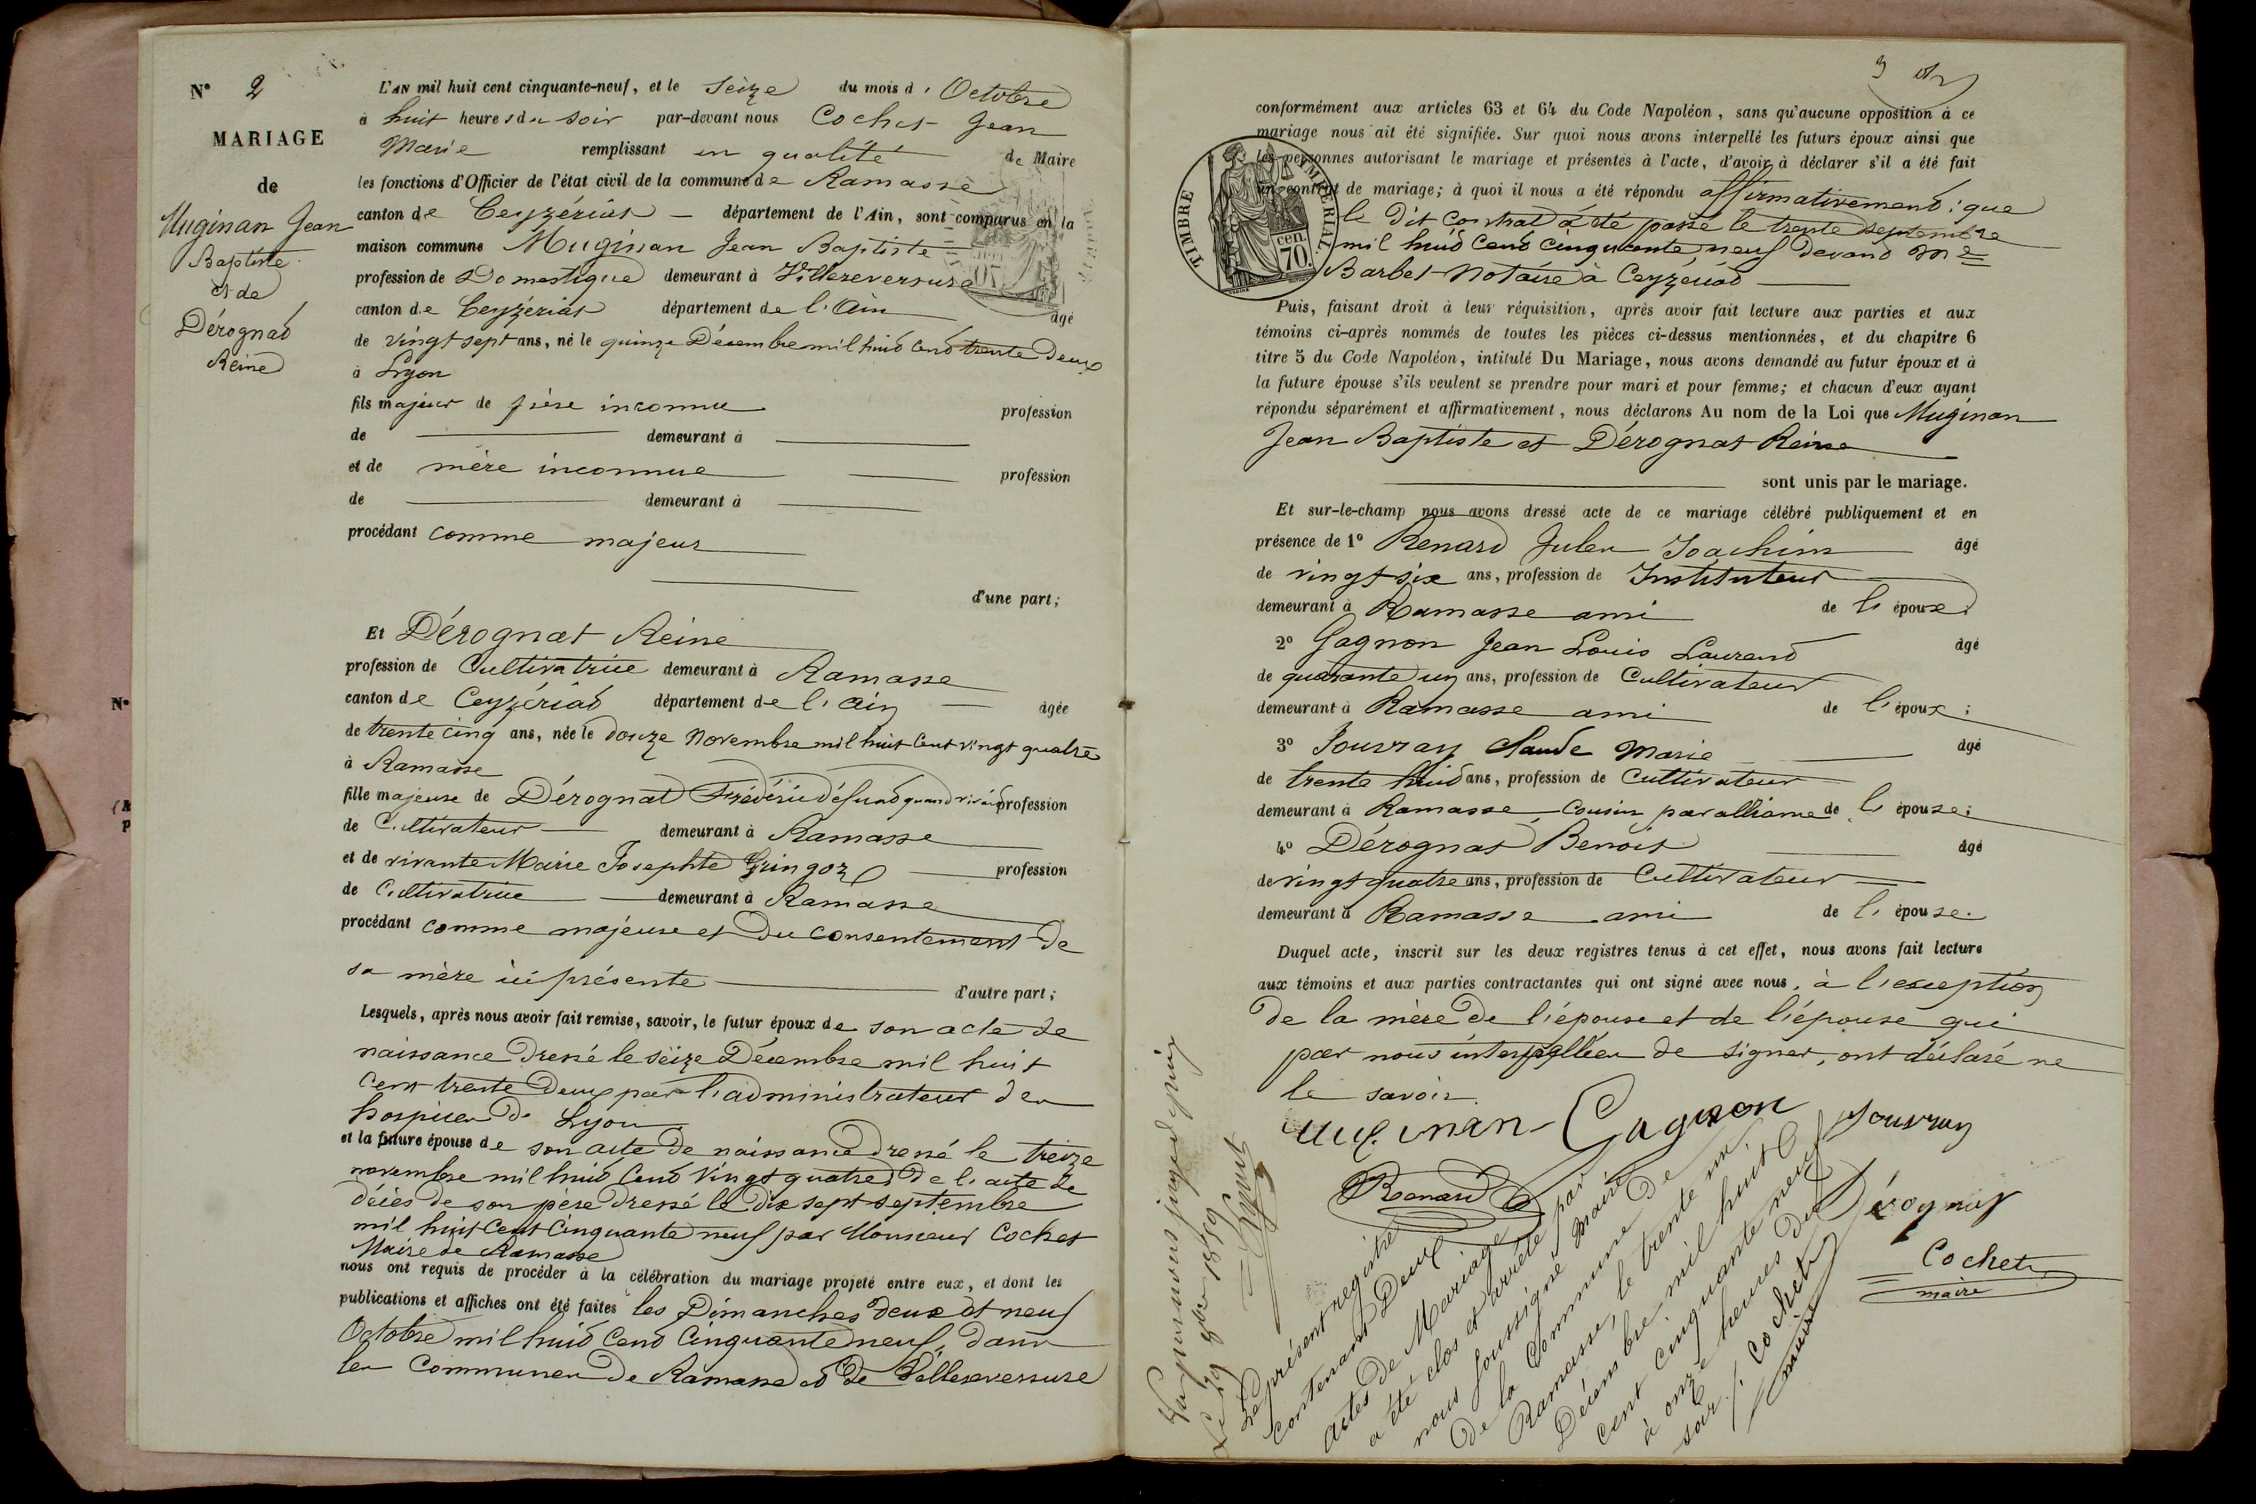 N° 2
MARIAGE
de
Muginan Jean
Baptiste
et de
Dérognat
Reine
L'AN mil huit cent cinquante-neuf, et le seize du mois d' Octobre
à huit heures du soir par-devant nous Cochet Jean
Marie remplissant en qualité de Maire
les fonctions d'Officier de l'état civil de la commune de Ramasse
canton de Ceyzériat département de l'Ain, sont comparus en la
maison commune Muginan Jean Baptiste
profession de Domestique demeurant à Villereversure
canton de Ceyzériat département de l'Ain âgé
de vingt sept ans, né le quinze Décembre mil huit cent trente deux
à Lyon
fils majeur de père inconnu profession
de demeurant à
et de mère inconnue profession
de demeurant à
procédant comme majeur
d'une part;
Et Dérognat Reine
profession de Cultivatrice demeurant à Ramasse
canton de Ceyzériat département de l'Ain âgée
de trente cinq ans, née le douze Novembre mil huit cent vingt quatre
à Ramasse
fille majeure de Dérognat Frédéric défunt quand vivait profession
de Cultivateur demeurant à Ramasse
et de vivante Marie Josephte Gringoz profession
de Cultivatrice demeurant à Ramasse
procédant comme majeure et du consentement de
sa mère ici présente
d'autre part;
Lesquels, après nous avoir fait remise, savoir, le futur époux de son acte de
naissance dressé le seize Décembre mil huit
cent trente deux par l'administrateur des
hospices de Lyon
et la future épouse de son acte de naissance dressé le treize
novembre mil huit cent vingt quatre de l'acte de
décès de son père dressé le dix sept septembre
mil huit cent cinquante neuf par Monsieur Cochet
Maire de Ramasse
nous ont requis de procéder à la célébration du mariage projeté entre eux, et dont les
publications et affiches ont été faites les Dimanches deux et neuf
Octobre mil huit cent cinquante neuf, dans
les communes de Ramasse et de Villereversure
3
conformément aux articles 63 et 64 du Code Napoléon, sans qu'aucune opposition à ce
mariage nous ait été signifiée. Sur quoi nous avons interpellé les futurs époux ainsi que
les personnes autorisant le mariage et présentes à l'acte, d'avoir à déclarer s'il a été fait
un contrat de mariage; à quoi il nous a été répondu affirmativement: que
le dit contrat a été passé le trente septembre
mil huit cent cinquante neuf devant Me
Barbet Notaire à Ceyzeriat
TIMBRE IMPERIAL
70 cen.
Puis, faisant droit à leur réquisition, après avoir fait lecture aux parties et aux
témoins ci-après nommés de toutes les pièces ci-dessus mentionnées, et du chapitre 6
titre 5 du Code Napoléon, intitulé Du Mariage, nous avons demandé au futur époux et à
la future épouse s'ils veulent se prendre pour mari et pour femme; et chacun d'eux ayant
répondu séparément et affirmativement, nous déclarons Au nom de la Loi que Muginan
Jean Baptiste et Dérognat Reine
sont unis par le mariage.
Et sur-le-champ nous avons dressé acte de ce mariage célébré publiquement et en
présence de 1° Renard Jules Joachim âgé
de vingt six ans, profession de Instituteur
demeurant à Ramasse ami de l'épouse;
2° Gagnon Jean Louis Laurent âgé
de quarante un ans, profession de Cultivateur
demeurant à Ramasse ami de l'époux;
3° Jouvray Claude Marie âgé
de trente huit ans, profession de Cultivateur
demeurant à Ramasse Cousin par alliance de l'épouse;
4° Dérognat Benoit âgé
de vingt quatre ans, profession de Cultivateur
demeurant à Ramasse ami de l'épouse.
Duquel acte, inscrit sur les deux registres tenus à cet effet, nous avons fait lecture
aux témoins et aux parties contractantes qui ont signé avec nous, à l'exception
de la mère de l'épouse et de l'épouse qui
par nous interpellées de signer, ont déclaré ne
le savoir.
Muginan Gagnon Jouvray
Renard
Dérognat
Cochet
maire
Le présent registre
contenant deux
actes de Mariage
a été clos et arrêté par
nous soussigné Maire
de la Commune de
Ramasse, le trente un
Décembre mil huit
cent cinquante neuf
à onze heures du
soir.
Cochet
maire